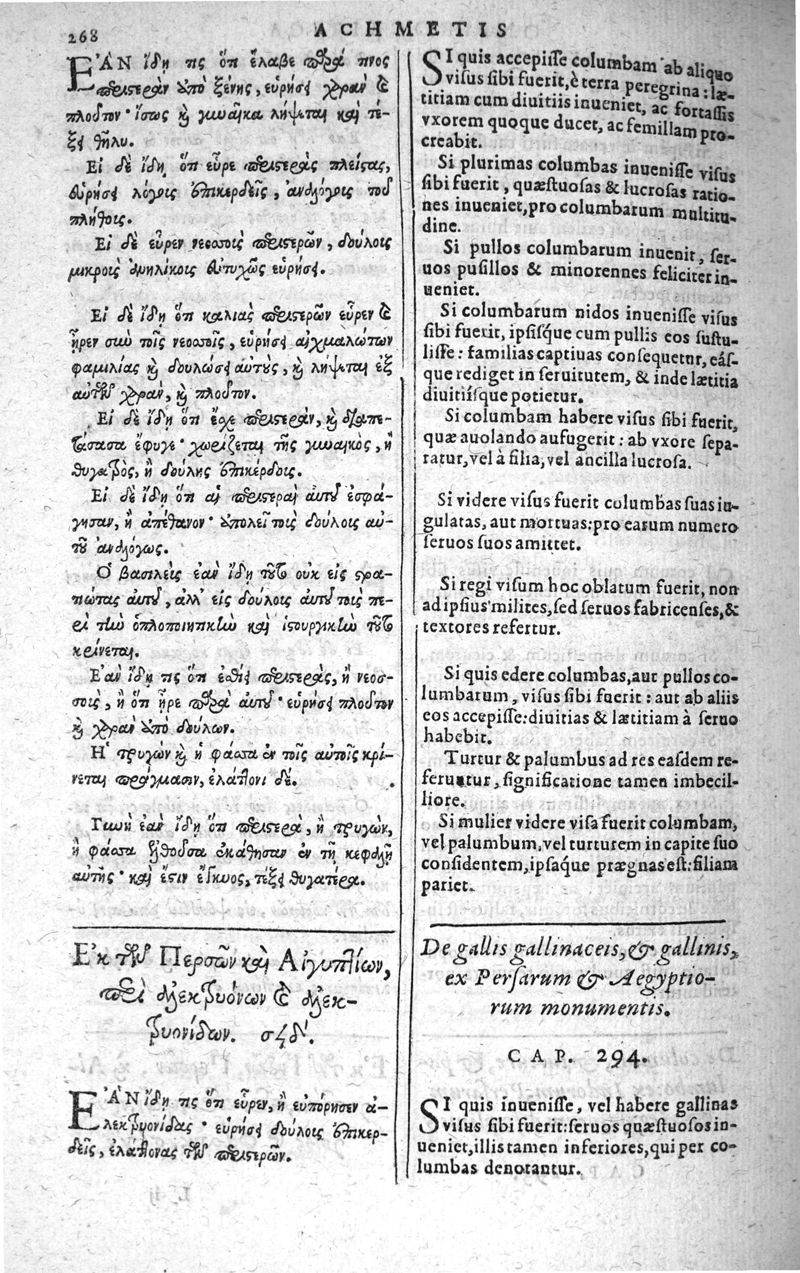 268
ACHMETIS
ἘΑΝ ἴδῃ τις ὅτι ἔλαβε παρά τινος
περιστερὰν ἀπὸ ξένης, εὑρήσει χαρὰν καὶ
πλοῦτον· ἴσως καὶ γυναῖκα λήψεται καὶ τέ-
ξει θῆλυ.
Εἰ δὲ ἴδῃ ὅτι εὗρε περιστερὰς πλείστας,
εὑρήσει λόγοις ἐπικερδεῖς, ἀναλόγοις τοῦ
πλήθοις.
Εἰ δὲ εὗρεν νεοσσοὺς περιστερῶν, δούλοις
μικροὺς ἀνηλίκοις εὐτυχῶς εὑρήσει.
Εἰ δὲ ἴδῃ ὅτι καλιὰς περιστερῶν εὗρεν καὶ
ἦρεν σὺν τοῖς νεοσσοῖς, εὑρήσει αἰχμαλώτων
φαμιλίας καὶ δουλώσει αὐτὺς, καὶ λήψεται ἐξ
αὐτῶν χαρὰν, καὶ πλοῦτον.
Εἰ δὲ ἴδῃ ὅτι ἔσχε περιστερὰν, καὶ διαπε-
τάσασα ἔφυγε· χωρίζεται τῆς γυναικὸς, ἢ
θυγατρὸς, ἢ δούλης ἐπικέρδοις.
Εἰ δὲ ἴδῃ ὅτι αἱ περιστεραὶ αὐτοῦ ἐσφά-
γησαν, ἢ ἀπέθανον· ἀπολεῖ τοὺς δούλοις αὐ-
τοῦ ἀναλόγως.
Ὁ βασιλεὺς ἐὰν ἴδῃ τοῦτο οὐκ εἰς στρα-
τιώτας αὐτοῦ, ἀλλ' εἰς δούλοις αὐτοῦ τοὺς πε-
ρὶ τὴν ὁπλοποιητικὴν καὶ ἱστουργικὴν τοῦτο
κρίνεται.
Ἐὰν ἴδῃ τις ὅτι ἐσθίει περιστερὰς, ἢ νεοσ-
σοὺς, ἢ ὅτι ἦρε παρὰ αὐτοῦ· εὑρήσει πλοῦτον
καὶ χαρὰν ἀπὸ δούλων.
Ἡ τρυγὼν καὶ ἡ φάσσα ἐν τοῖς αὐτοῖς κρί-
νεται πράγμασιν, ἐλάττονι δέ.
Γυνὴ ἐὰν ἴδῃ ὅτι περιστερὰ, ἢ τρυγὼν,
ἢ φάσσα ἐλθοῦσα ἐκάθησαν ἐν τῇ κεφαλῇ
αὐτῆς· καὶ ἔστιν ἔγκυος, τέξει θυγατέρα.
Ἐκ τῶν Περσῶν καὶ Αἰγυπτίων,
περὶ ἀλεκτρυόνων καὶ ἀλεκ-
τρυονίδων. σϟδʹ.
ἘΑΝ ἴδῃ τις ὅτι εὗρεν, ἢ εὐπόρησεν ἀ-
λεκτρυονίδας· εὑρήσει δούλοις ἐπικερ-
δεῖς, ἐλάττονας τῶν περιστερῶν.
SI quis accepisse columbam ab aliquo
visus sibi fuerit, è terra peregrina: læ-
titiam cum diuitiis inueniet, ac fortassis
vxorem quoque ducet, ac femillam pro-
creabit.
Si plurimas columbas inuenisse visus
sibi fuerit, quæstuosas & lucrosas ratio-
nes inueniet, pro columbarum multitu-
dine.
Si pullos columbarum inuenit, ser-
uos pusillos & minorennes feliciter in-
ueniet.
Si columbarum nidos inuenisse visus
sibi fuerit, ipsisque cum pullis eos sustu-
lisse: familias captiuas consequetur, eás-
que rediget in seruitutem, & inde lætitia
diuitiisque potietur.
Si columbam habere visus sibi fuerit,
quæ auolando aufugerit: ab vxore sepa-
ratur, vel à filia, vel ancilla lucrosa.
Si videre visus fuerit columbas suas iu-
gulatas, aut mortuas: pro earum numero
seruos suos amittet.
Si regi visum hoc oblatum fuerit, non
ad ipsius milites, sed seruos fabricenses, &
textores refertur.
Si quis edere columbas, aut pullos co-
lumbarum, visus sibi fuerit: aut ab aliis
eos accepisse: diuitias & lætitiam à seruo
habebit.
Turtur & palumbus ad res easdem re-
feruntur, significatione tamen imbecil-
liore.
Si mulier videre visa fuerit columbam,
vel palumbum, vel turturem in capite suo
considentem, ipsaque prægnas est: filiam
pariet.
De gallis gallinaceis, & gallinis,
ex Persarum & Aegyptio-
rum monumentis.
CAP. 294.
SI quis inuenisse, vel habere gallinas
visus sibi fuerit: seruos quæstuosos in-
ueniet, illis tamen inferiores, qui per co-
lumbas denotantur.